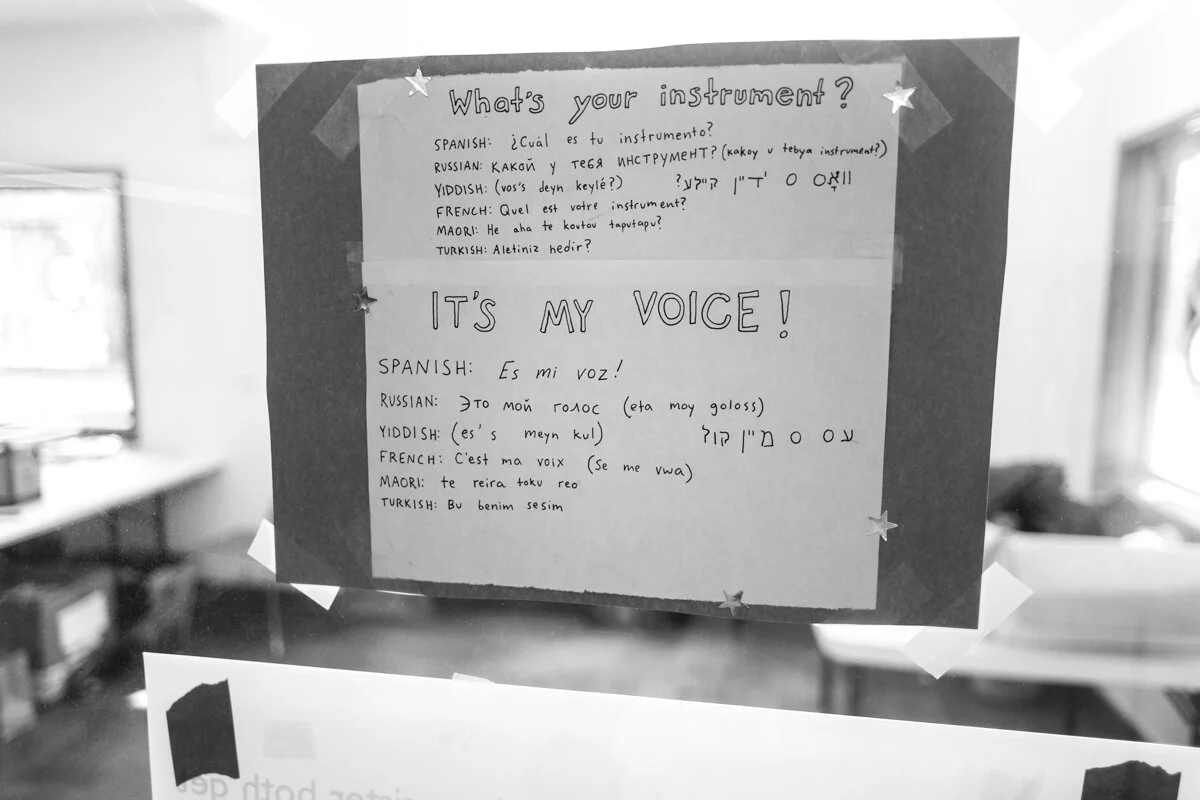 What's your instrument?
SPANISH: ¿Cuál es tu instrumento?
RUSSIAN: КАКОЙ У ТЕБЯ ИНСТРУМЕНТ? (kakoy u tebya instrument?)
YIDDISH: (vos's deyn keylé?) װאָס ס ד'ײַן קײלע?
FRENCH: Quel est votre instrument?
MAORI: He aha te koutou taputapu?
TURKISH: Aletiniz nedir?
IT'S MY VOICE!
SPANISH: Es mi voz!
RUSSIAN: Это мой голос (eta moy goloss)
YIDDISH: (es's meyn kul) עס ס מײַן קול
FRENCH: C'est ma voix (Se me vwa)
MAORI: te reira toku reo
TURKISH: Bu benim sesim